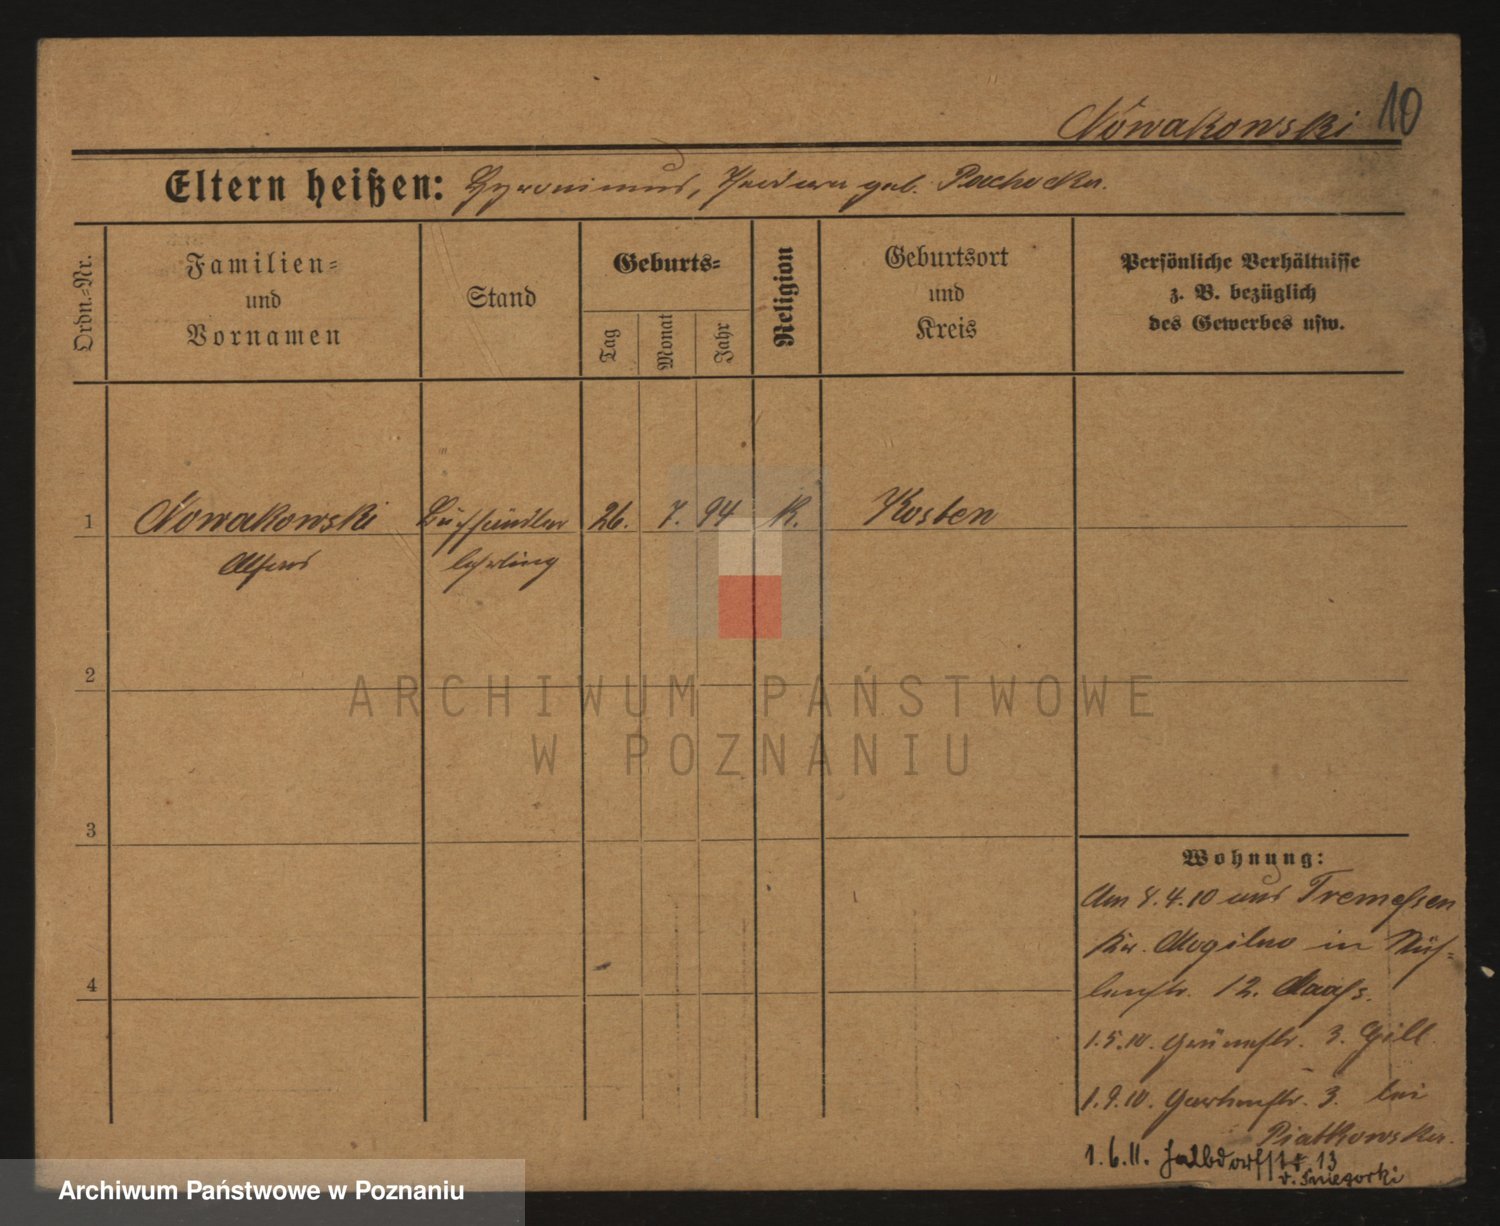 Nowakowski 10
Eltern heißen: Hyronimus, geb. Pachocka.
Ordn.-Nr.
Familien-
und
Vornamen
Stand
Geburts-
Tag
Monat
Jahr
Religion
Geburtsort
und
Kreis
Persönliche Verhältnisse
z. B. bezüglich
des Gewerbes usw.
1 Nowakowski Buchhändler 26. 7. 94 K. Kosten
Alfons lehrling
2
ARCHIWUM PAŃSTWOWE
W POZNANIU
3
Wohnung:
Am 8.4.10 aus Tremessen
Kr. Mogilno in Müh-
lenstr. 12. Maaß.
4
1.5.10. Grünestr. 3. Gill
1.9.10. Gartenstr. 3. bei
Piatkowska.
1.6.11. Halbdorfstr 13
v. Sniegocki
Archiwum Państwowe w Poznaniu